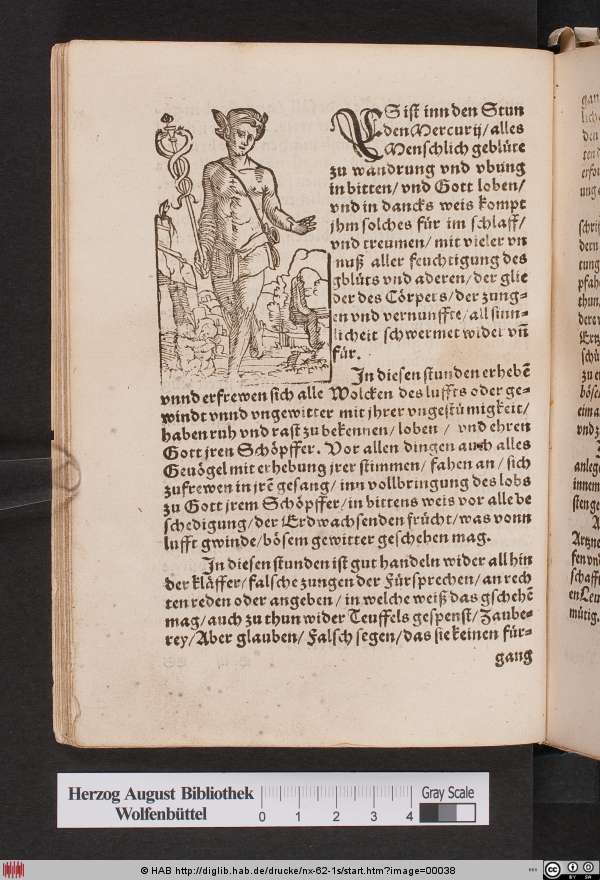 ES ist inn den Stun
den Mercurij/ alles
Menschlich geblüte
zu wandrung vnd vbung
in bitten/ vnd Gott loben/
vnd in dancks weis kompt
jhm solches für im schlaff/
vnd treumen/ mit vieler vn
nuß aller feuchtigung des
gblüts vnd aderen/ der glie
der des Cörpers/ der zung-
en vnd vernunffte/ all sinn-
licheit schwermet wider vñ
für.
In diesen stunden erhebẽ
vnnd erfrewen sich alle Wolcken des luffts oder ge-
windt vnnd vngewitter mit jhrer vngestümigkeit/
haben ruh vnd rast zu bekennen/ loben / vnd ehren
Gott jren Schöpffer. Vor allen dingen auch alles
Gevögel mit erhebung jrer stimmen/ fahen an/ sich
zufrewen in jrẽ gesang/ inn vollbringung des lobs
zu Gott jrem Schöpffer/ in bittens weis vor alle be
schedigung/ der Erdwachsenden frücht/ was vonn
lufft gwinde/ bösem gewitter geschehen mag.
In diesen stunden ist gut handeln wider all hin
der kläffer/ falsche zungen der Fürsprechen/ an rech
ten reden oder angeben/ in welche weiß das gschehẽ
mag/ auch zu thun wider Teuffels gespenst/ Zaube-
rey/ Aber glauben/ Falsch segen/ das sie keinen für-
gang
Herzog August Bibliothek
Wolfenbüttel
0 1 2 3 4
Gray Scale
© HAB http://diglib.hab.de/drucke/nx-62-1s/start.htm?image=00038
CC BY SA